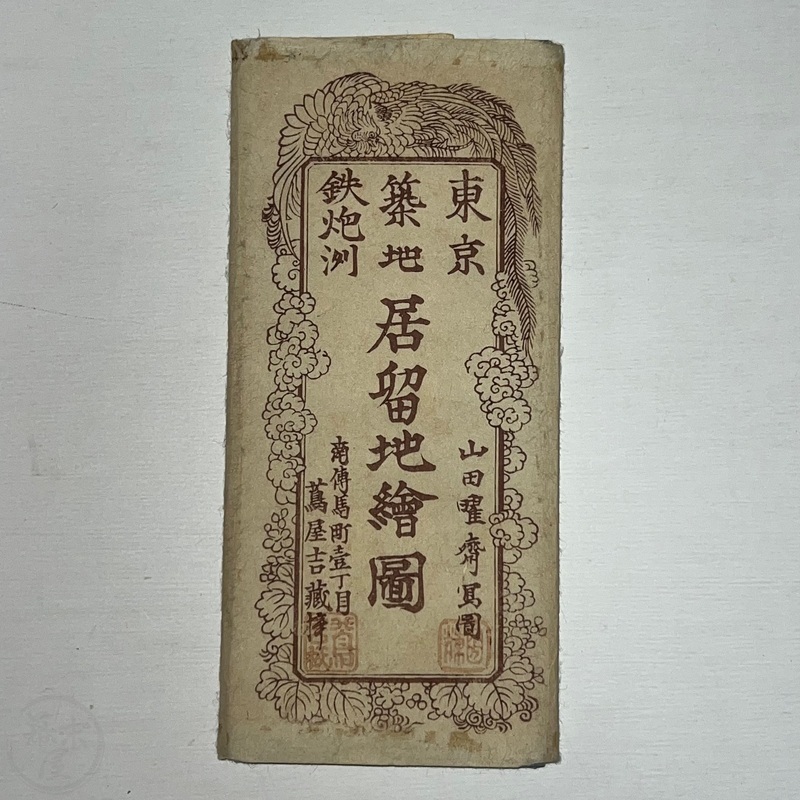 東京
築地
鉄炮洲
居留地繪圖
山田曜齋寫圖
南傳馬町壹丁目
蔦屋吉藏梓